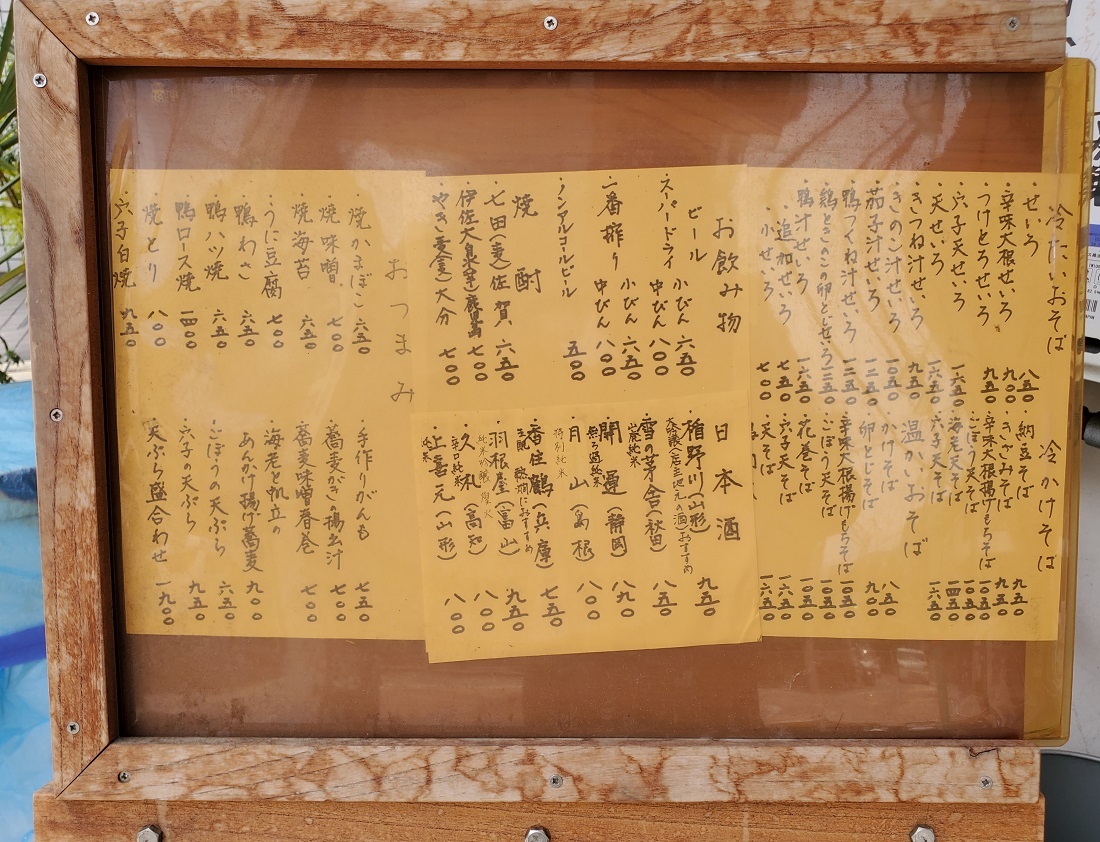 冷たいおそば
・せいろ 八五〇
・辛味大根せいろ 九〇〇
・つけとろせいろ 九五〇
・穴子天せいろ 一六五〇
・天せいろ 一六五〇
・きつね汁せいろ 九五〇
・きのこ汁せいろ 一〇五〇
・茄子汁せいろ 一二五〇
・鴨つくね汁せいろ 一二五〇
・鶏ときのこの卵とじせいろ 一三五〇
・鴨汁せいろ 一六五〇
・追加せいろ 七五〇
・小せいろ 七〇〇
冷かけそば
・納豆そば 九五〇
・きざみそば 九五〇
・辛味大根揚げもちそば 一〇五〇
・ごぼう天そば 一〇五〇
・海老天そば 一四五〇
・穴子天そば 一六五〇
温かいおそば
・かけそば 八五〇
・卵とじそば 九〇〇
・辛味大根揚げもちそば 一〇五〇
・ごぼう天そば 一〇五〇
・花巻そば 一〇五〇
・穴子天そば 一六五〇
・天そば 一六五〇
お飲み物
ビール
・スーパードライ 小びん 六五〇
中びん 八〇〇
・一番搾り 小びん 六五〇
中びん 八〇〇
・ノンアルコールビール 五〇〇
焼酎
・七田(麦)佐賀 六五〇
・伊佐大泉(芋)鹿児島 七〇〇
・やきい麦(麦)大分 七〇〇
日本酒
・樽野川(山形) 九五〇
大吟醸(店主地元の酒)おすすめ
・雪の茅舎(秋田) 八五〇
山廃純米
・開運(静岡) 八九〇
無ろ過純米
・月山(島根) 八〇〇
特別純米
・香住鶴(兵庫) 七五〇
生酛 熱燗におすすめ
・羽根屋(富山) 九五〇
純米吟醸 煌火
・久礼(高知) 八〇〇
辛口純米
・上喜元(山形) 八〇〇
純米
おつまみ
・焼かまぼこ 六五〇
・焼味噌 七〇〇
・焼海苔 六五〇
・うに豆腐 七〇〇
・鴨わさ 六五〇
・鴨ハツ焼 六五〇
・鴨ロース焼 一四〇〇
・焼とり 八〇〇
・穴子白焼 九五〇
・手作りがんも 七五〇
・蕎麦がきの揚出汁 七〇〇
・蕎麦味噌春巻 七〇〇
・海老と帆立の
あんかけ揚げ蕎麦 九〇〇
・ごぼうの天ぷら 六五〇
・穴子の天ぷら 九五〇
・天ぷら盛合わせ 一九〇〇